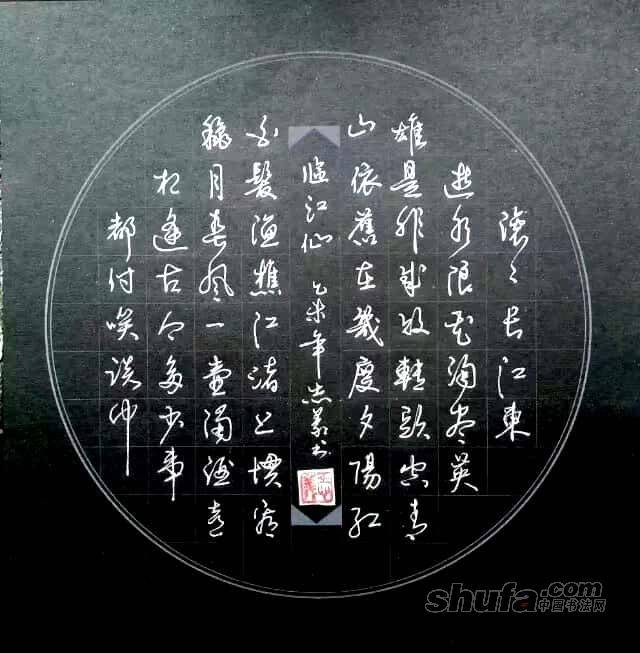 滚々长江东
逝水浪花淘尽英
雄是非成败转头空青
山依旧在几度夕陽红
临江仙 乙未年志義书
白髮渔樵江渚上惯看
穐月春风一壶浊酒喜
相逢古今多少事
都付笑谈中
shufa.com
中国书法网